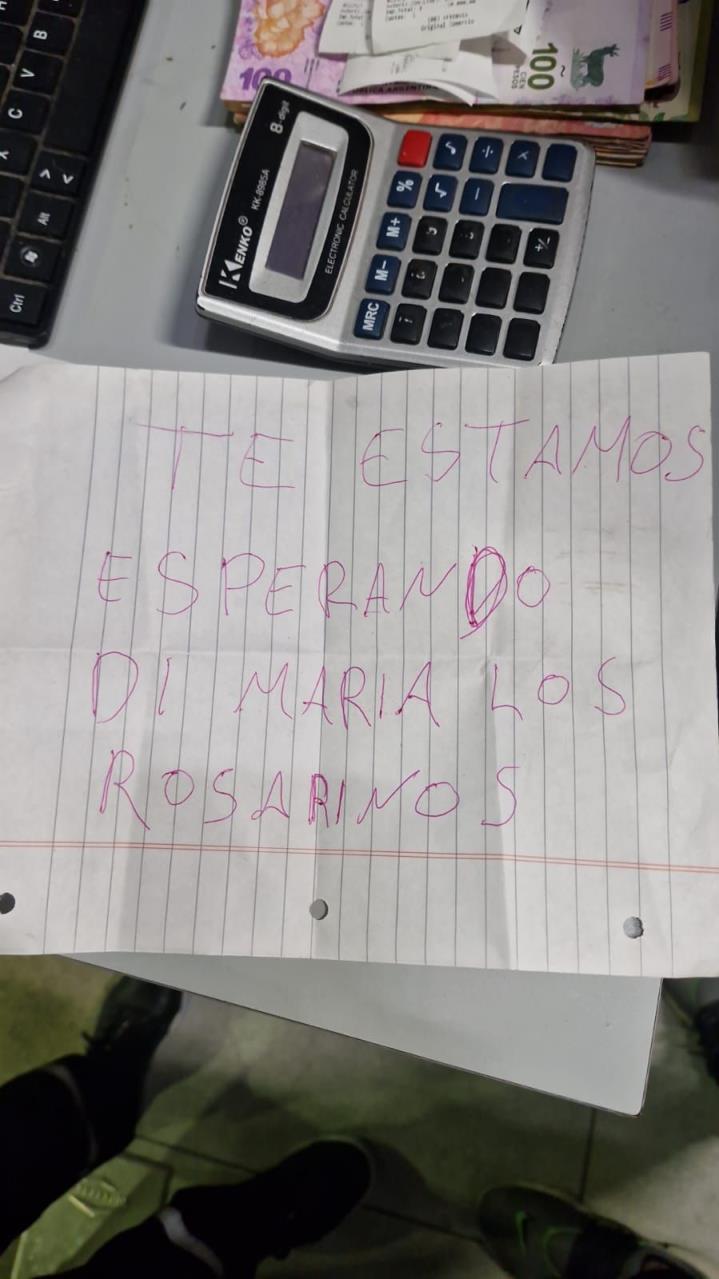 B
V
C
X
> <
Alt
Ctrl
100
100
CIEN
PESOS
Original Comercio
KENKO®
KK-8985A
8-digit
ELECTRONIC CALCULATOR
÷
×
%
√
−
M+
M−
MRC
+/-
TE ESTAMOS
ESPERANDO
DI MARIA LOS
ROSARINOS